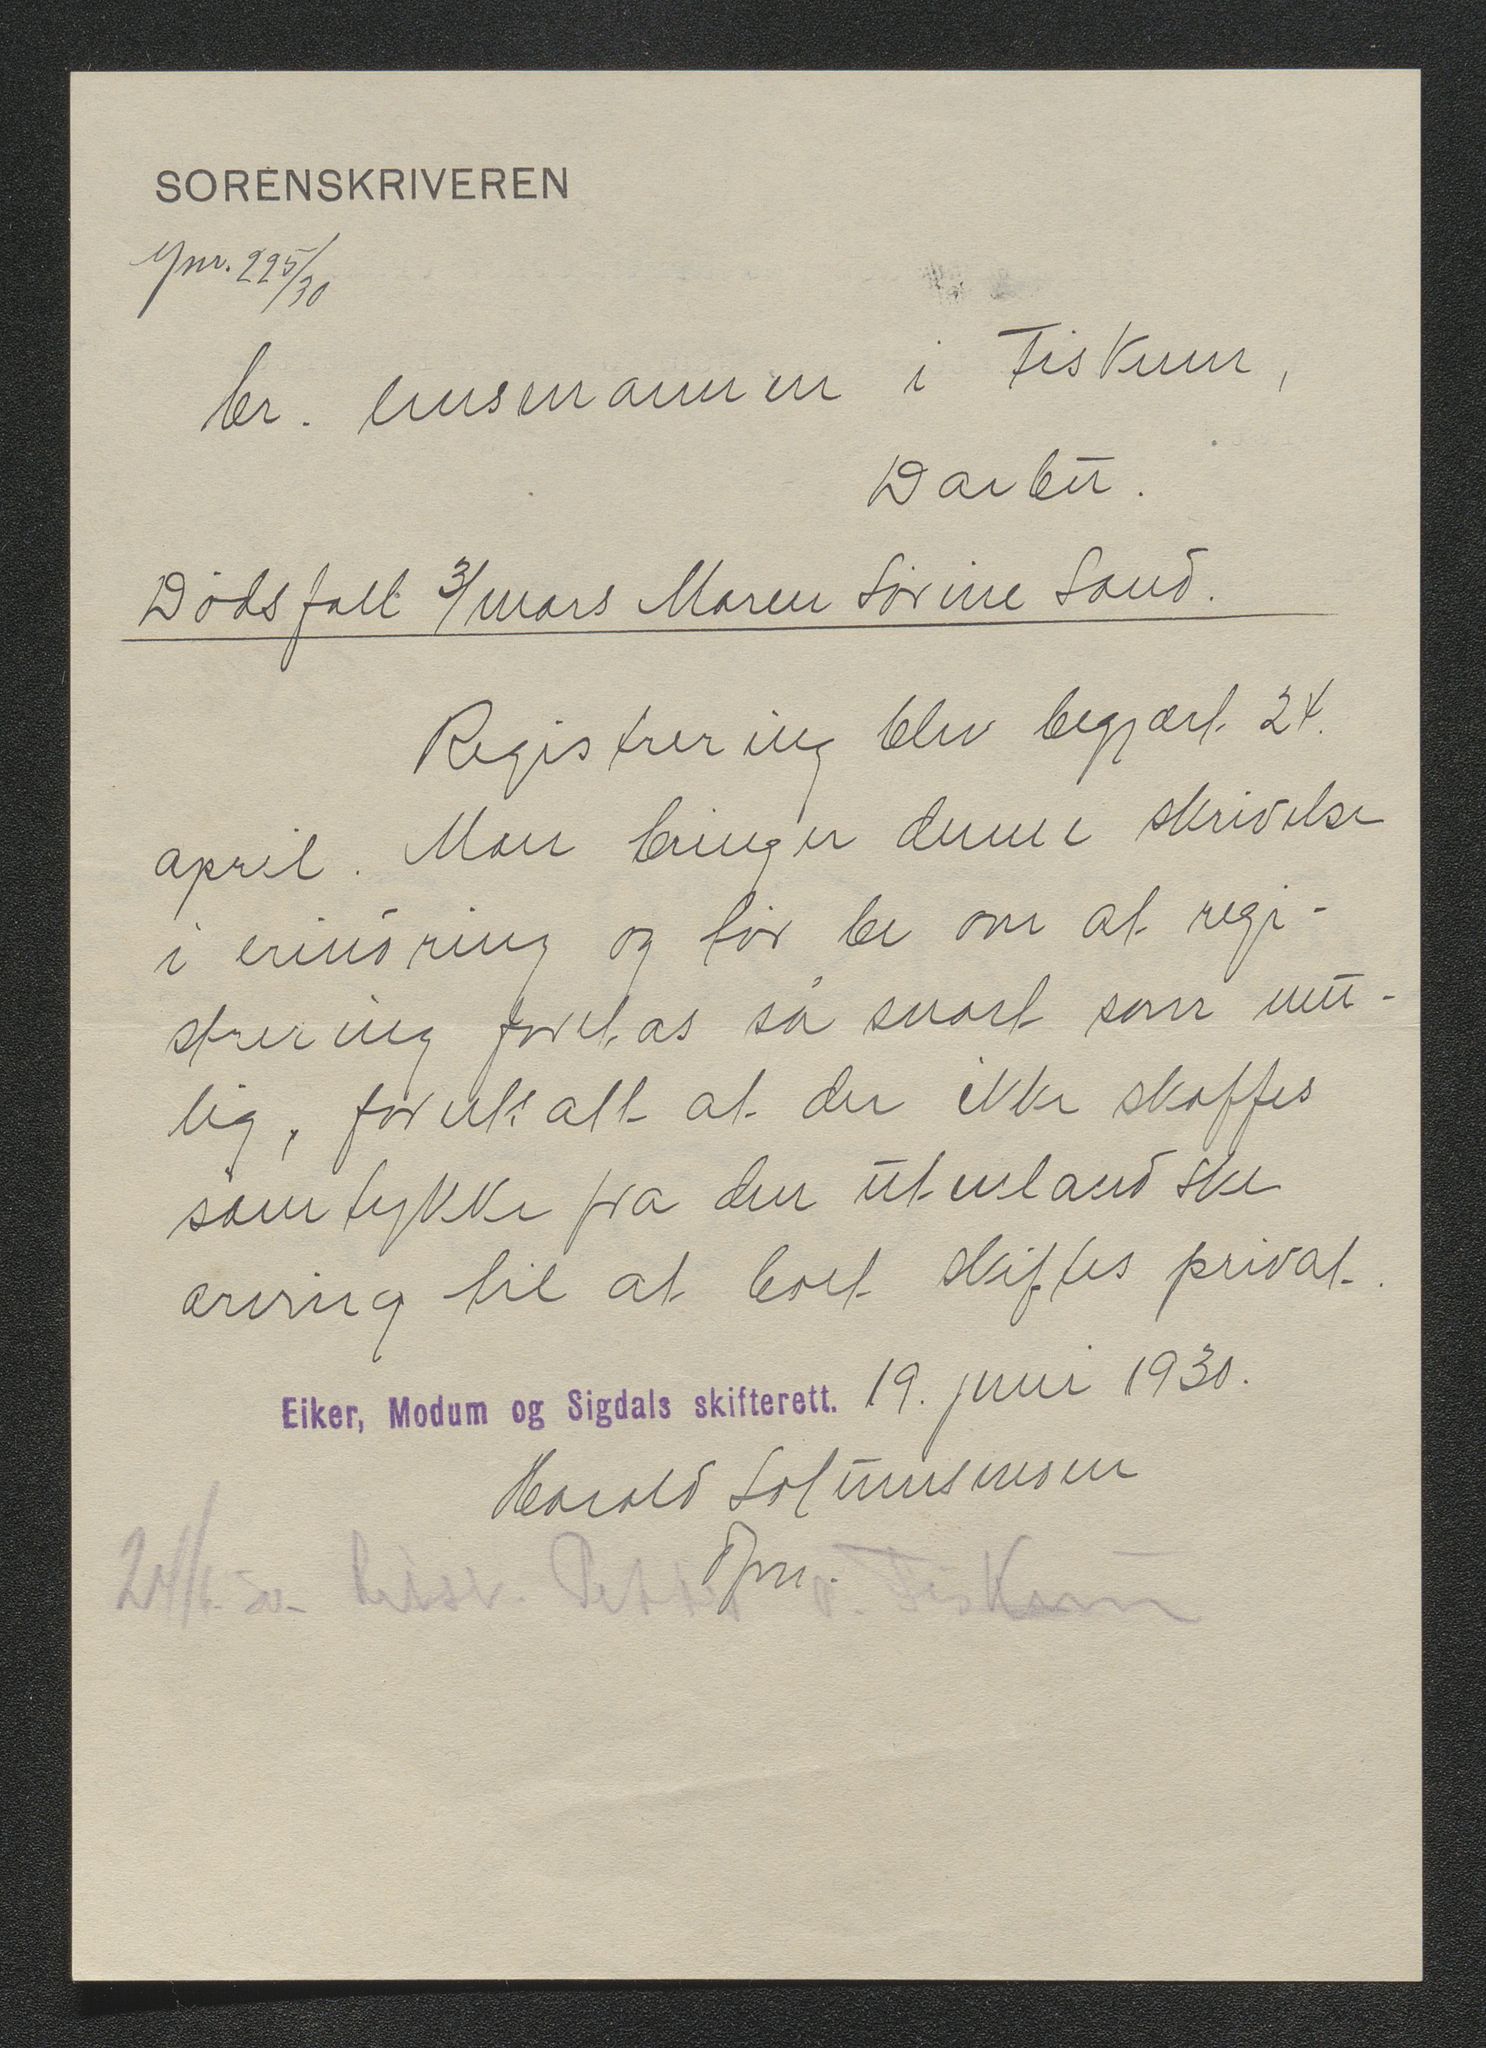 SORENSKRIVEREN
Jnr. 225/30
hr. lensmannen i Fiskum,
Darbu.
Dødsfall 3/mars Maren Sørine Sand.
Registrering blev begjært 24.
april. Man bringer denne skrivelse
i erindring og tør be om at regi-
strering foretas så snart som mu-
lig, forutsatt at der ikke skaffes
samtykke fra den utenlandske
arving til at boet skiftes privat.
Eiker, Modum og Sigdals skifterett. 19. juni 1930.
Harald
Fiskum